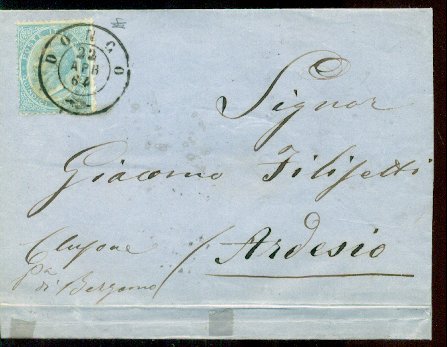 DONGO
22
APR
64
Signor
Giacomo Filisetti
Clusone / Ardesio
di Bergamo